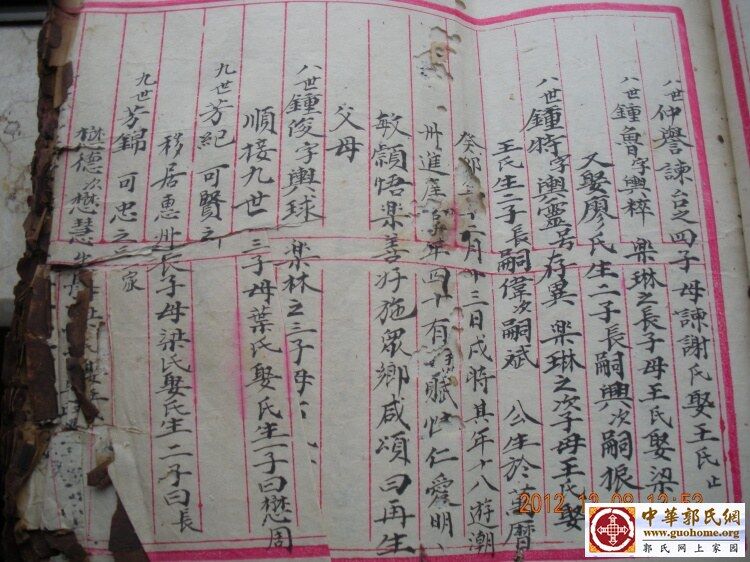 八世仲譽諫台之四子母諫謝氏娶王氏止
八世鍾魯字輿粹 樂琳之長子母王氏娶梁
又娶廖氏生二子長嗣興次嗣振
八世鍾將字輿靈号存異 樂琳之次子母王氏娶
王氏生二子長嗣偉次嗣斌 公生於萬曆
癸卯 十二月十三日戌時其年十八遊潮
州進庠 年四十有 賦性仁愛明
敏颖悟樂善好施眾鄉咸頌曰再生
父母
八世鍾俊字輿球 樂林之三子母
順接九世 三子母葉氏娶氏生一子曰懋周
九世芳紀 可賢之
移居惠州長子母梁氏娶氏生二子曰長
九世芳錦 可忠之 家
懋德次懋慧
2012.12.09 12:52
中華郭氏網
www.guohome.org
郭氏网上家园